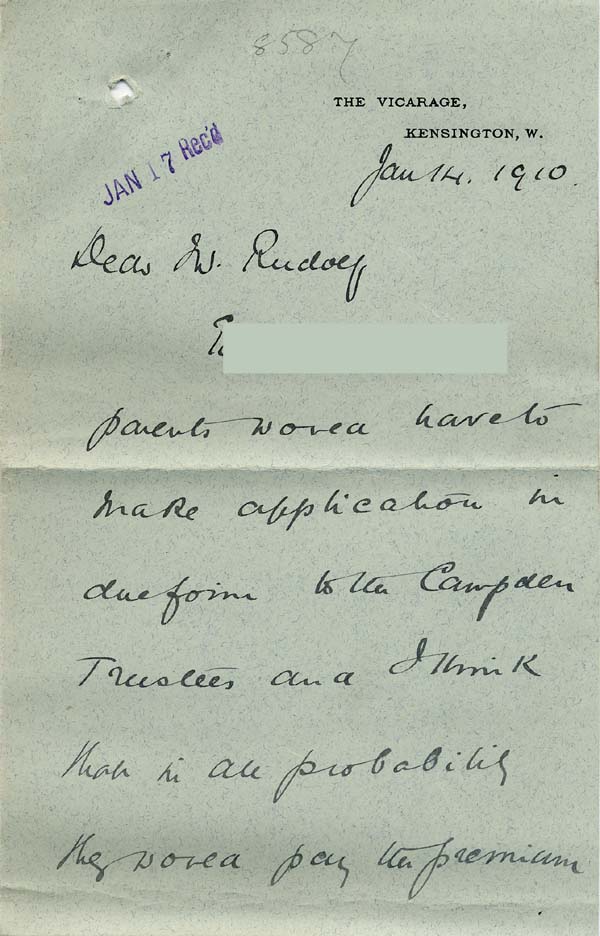 8587
THE VICARAGE,
KENSINGTON, W.
JAN 17 Rec'd
Jan 14. 1910.
Dear Mr. Rudolf
parents would have to
make application in
due form to the Campden
Trustees and I think
that in all probability
they would pay the premium